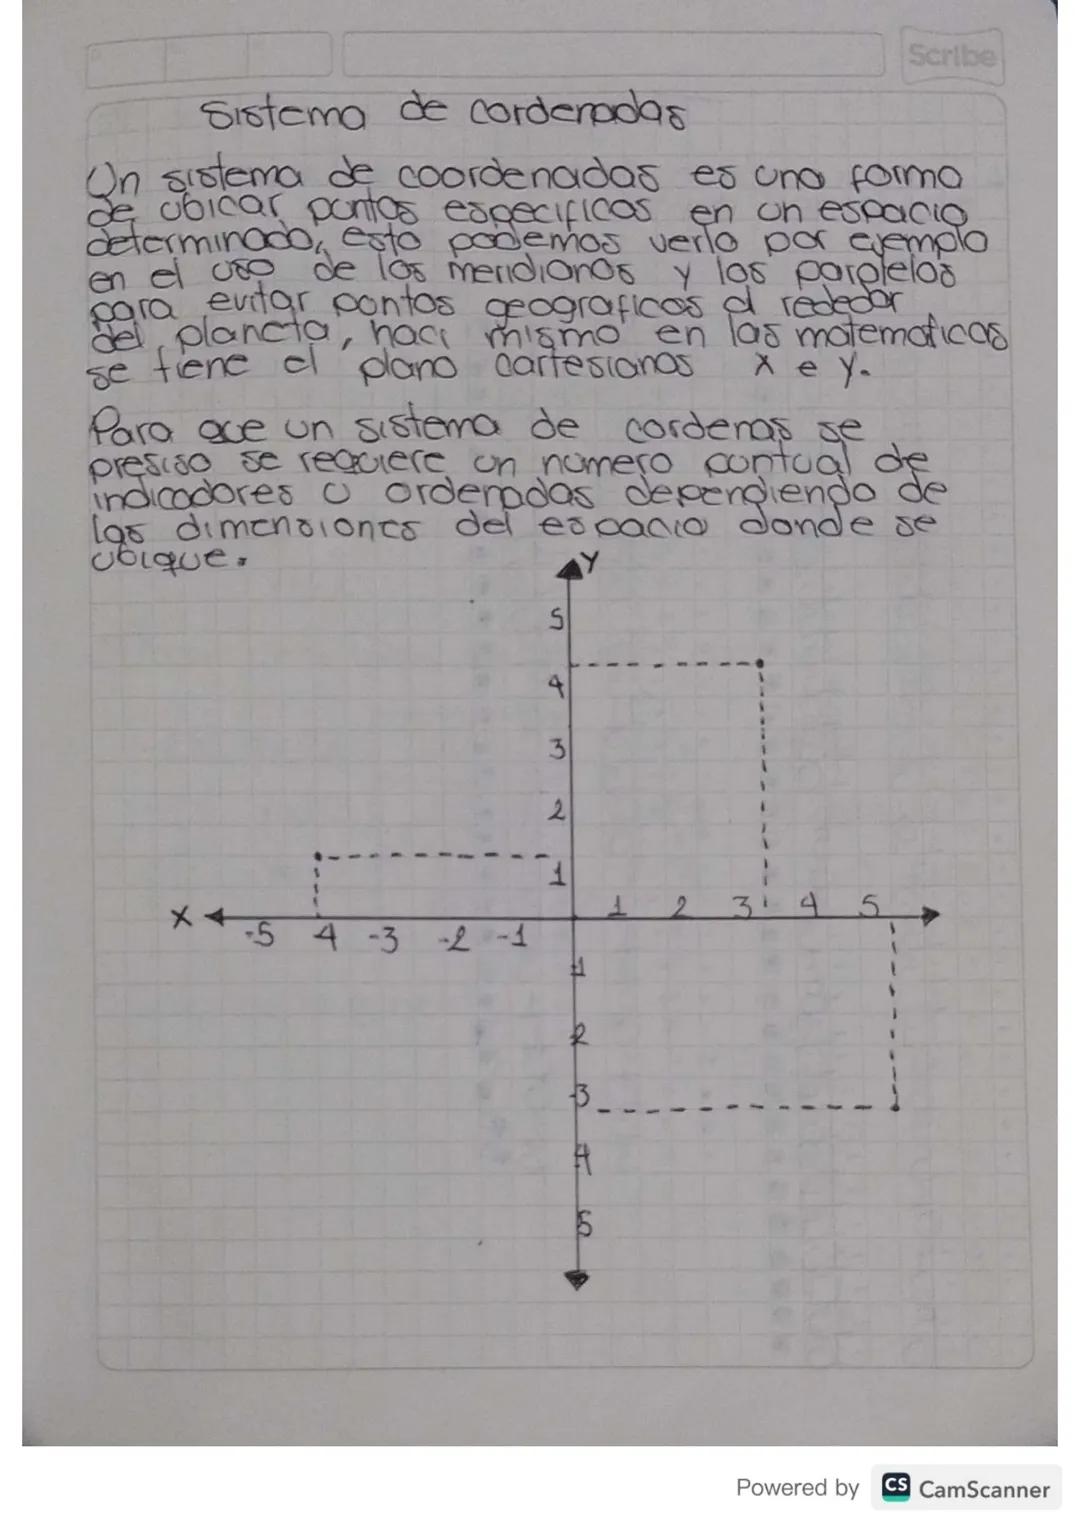 Scribe
Sistema de cordenadas
Un sistema de coordenadas es una forma
de ubicar puntos especificos en un espacio
determinado, esto podemos verlo por ejemplo
en el uso de los meridianos y los paralelos
para evitar pontos geograficos al rededor
del planeta, haci mismo en las matematicas
se tiene el plano cartesianos x e y.
Para que un sistema de cordenas se
presiso se requiere un numero pontual de
indicadores u ordenadas dependiendo de
las dimensiones del espacio donde se
ubique.
Y
5
4
3
2
1
X -5 4 -3 -2 -1 1 2 3 4 5
-1
2
-3
4
5
Powered by CS CamScanner